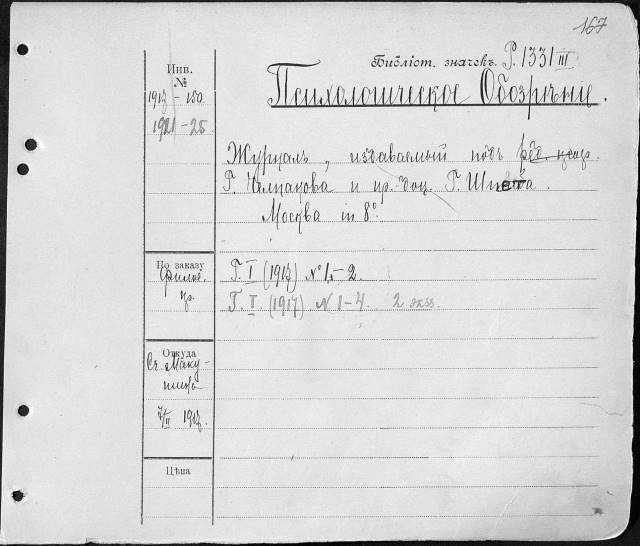 167
Библіот. значекъ. P. 1331 III
Психологическое Обозрѣніе.
Инв.
№
1917 - 150.
1921 - 25
Журналъ, издаваемый подъ ред. проф.
Г. Челпанова и пр.-доц. Г. Шпета.
Москва in 8°.
По заказу
Филос.
Г. I (1917) № 1-2.
Г. II (1917) N 1-4. 2 экз.
Откуда
Сч. Маку-
шина
7/II 1917.
Цѣна